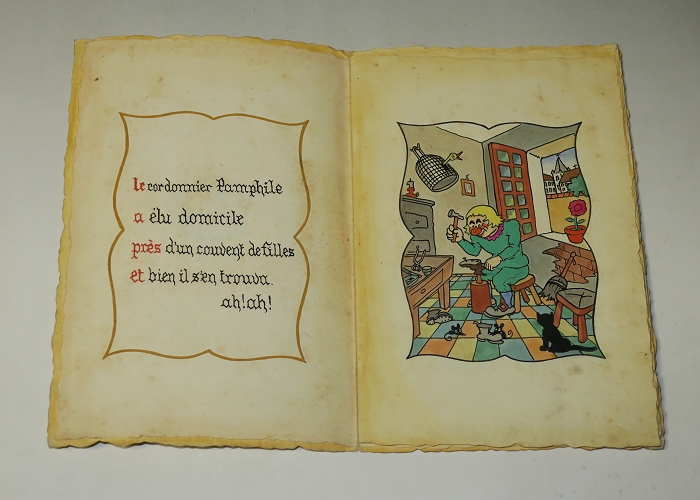 le cordonnier Pamphile
a élu domicile
près d'un couvent de filles
et bien il s'en trouva.
ah! ah!